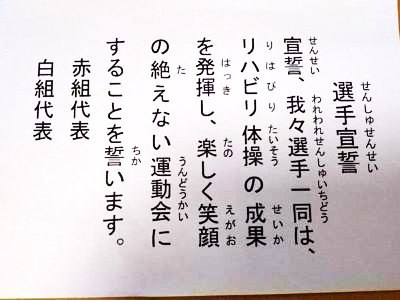 選手宣誓
せんしゅせんせい
宣誓、我々選手一同は、
せんせい われわれせんしゅいちどう
リハビリ体操の成果
りはびり たいそう せいか
を発揮し、楽しく笑顔
はっき たの えがお
の絶えない運動会に
た うんどうかい
することを誓います。
ちか
赤組代表
白組代表